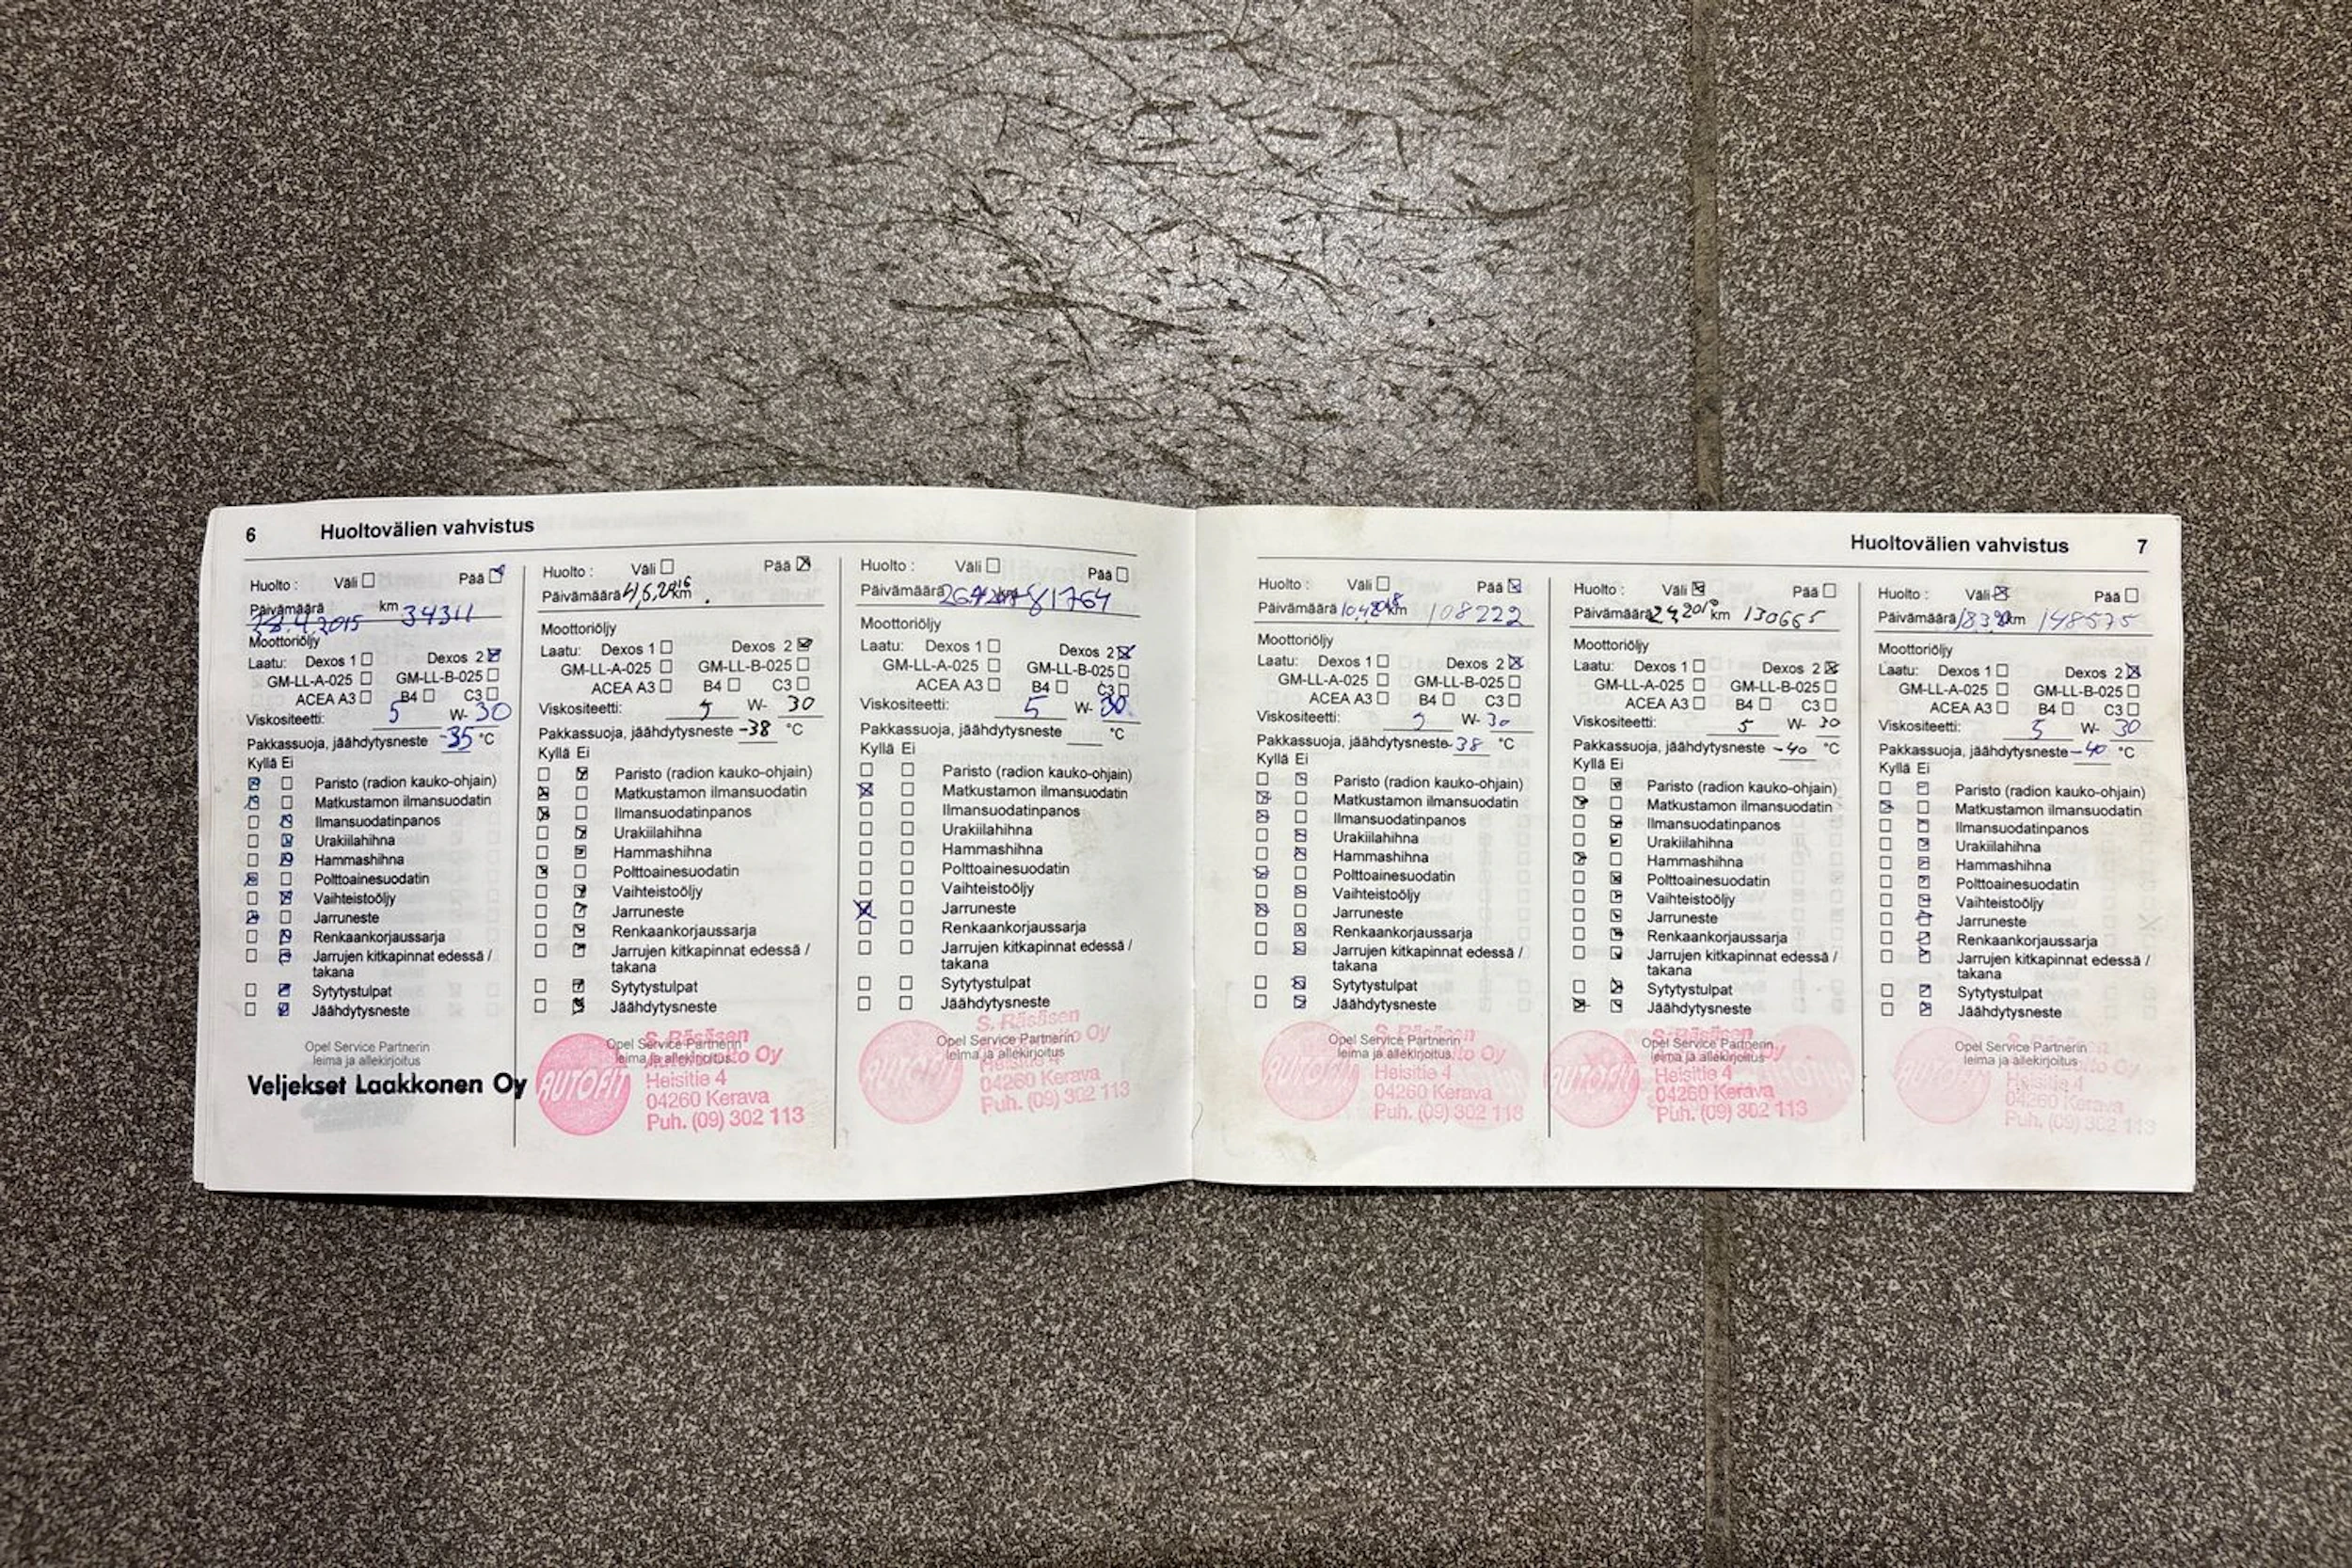 6 Huoltovälien vahvistus
Huolto : Väli Pää
Päivämäärä km 34311
28.4.2015
Moottoriöljy
Laatu: Dexos 1 Dexos 2
GM-LL-A-025 GM-LL-B-025
ACEA A3 B4 C3
Viskositeetti: 5 W- 30
Pakkassuoja, jäähdytysneste -35 °C
Kyllä Ei
Paristo (radion kauko-ohjain)
Matkustamon ilmansuodatin
Ilmansuodatinpanos
Urakiilahihna
Hammashihna
Polttoainesuodatin
Vaihteistoöljy
Jarruneste
Renkaankorjaussarja
Jarrujen kitkapinnat edessä /
takana
Sytytystulpat
Jäähdytysneste
Opel Service Partnerin
leima ja allekirjoitus
Veljekset Laakkonen Oy
Huolto : Väli Pää
Päivämäärä km
Moottoriöljy
Laatu: Dexos 1 Dexos 2
GM-LL-A-025 GM-LL-B-025
ACEA A3 B4 C3
Viskositeetti: 5 W- 30
Pakkassuoja, jäähdytysneste -38 °C
Kyllä Ei
Paristo (radion kauko-ohjain)
Matkustamon ilmansuodatin
Ilmansuodatinpanos
Urakiilahihna
Hammashihna
Polttoainesuodatin
Vaihteistoöljy
Jarruneste
Renkaankorjaussarja
Jarrujen kitkapinnat edessä /
takana
Sytytystulpat
Jäähdytysneste
S. Räsäsen
Opel Service Partnerin
leima ja allekirjoitus Oy
AUTOFIT Heisitie 4
04260 Kerava
Puh. (09) 302 113
Huolto : Väli Pää
Päivämäärä km 81764
Moottoriöljy
Laatu: Dexos 1 Dexos 2
GM-LL-A-025 GM-LL-B-025
ACEA A3 B4 C3
Viskositeetti: 5 W- 30
Pakkassuoja, jäähdytysneste °C
Kyllä Ei
Paristo (radion kauko-ohjain)
Matkustamon ilmansuodatin
Ilmansuodatinpanos
Urakiilahihna
Hammashihna
Polttoainesuodatin
Vaihteistoöljy
Jarruneste
Renkaankorjaussarja
Jarrujen kitkapinnat edessä /
takana
Sytytystulpat
Jäähdytysneste
S. Räsäsen
Opel Service Partnerin Oy
leima ja allekirjoitus
AUTOFIT Heisitie 4
04260 Kerava
Puh. (09) 302 113
Huoltovälien vahvistus 7
Huolto : Väli Pää
Päivämäärä km 108222
Moottoriöljy
Laatu: Dexos 1 Dexos 2
GM-LL-A-025 GM-LL-B-025
ACEA A3 B4 C3
Viskositeetti: 5 W- 30
Pakkassuoja, jäähdytysneste -38 °C
Kyllä Ei
Paristo (radion kauko-ohjain)
Matkustamon ilmansuodatin
Ilmansuodatinpanos
Urakiilahihna
Hammashihna
Polttoainesuodatin
Vaihteistoöljy
Jarruneste
Renkaankorjaussarja
Jarrujen kitkapinnat edessä /
takana
Sytytystulpat
Jäähdytysneste
S. Räsäsen
Opel Service Partnerin
leima ja allekirjoitus Oy
AUTOFIT Heisitie 4
04260 Kerava
Puh. (09) 302 113
Huolto : Väli Pää
Päivämäärä km 130665
Moottoriöljy
Laatu: Dexos 1 Dexos 2
GM-LL-A-025 GM-LL-B-025
ACEA A3 B4 C3
Viskositeetti: 5 W- 30
Pakkassuoja, jäähdytysneste -40 °C
Kyllä Ei
Paristo (radion kauko-ohjain)
Matkustamon ilmansuodatin
Ilmansuodatinpanos
Urakiilahihna
Hammashihna
Polttoainesuodatin
Vaihteistoöljy
Jarruneste
Renkaankorjaussarja
Jarrujen kitkapinnat edessä /
takana
Sytytystulpat
Jäähdytysneste
S. Räsäsen
Opel Service Partnerin
leima ja allekirjoitus
AUTOFIT Heisitie 4
04260 Kerava
Puh. (09) 302 113
Huolto : Väli Pää
Päivämäärä km 148575
Moottoriöljy
Laatu: Dexos 1 Dexos 2
GM-LL-A-025 GM-LL-B-025
ACEA A3 B4 C3
Viskositeetti: 5 W- 30
Pakkassuoja, jäähdytysneste -40 °C
Kyllä Ei
Paristo (radion kauko-ohjain)
Matkustamon ilmansuodatin
Ilmansuodatinpanos
Urakiilahihna
Hammashihna
Polttoainesuodatin
Vaihteistoöljy
Jarruneste
Renkaankorjaussarja
Jarrujen kitkapinnat edessä /
takana
Sytytystulpat
Jäähdytysneste
Opel Service Partnerin
leima ja allekirjoitus Oy
AUTOFIT Heisitie 4
04260 Kerava
Puh. (09) 302 113